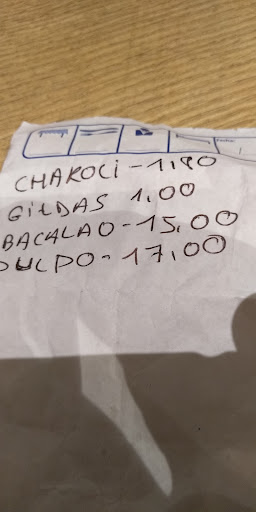 CHAKOLI - 1,80
GILDAS 1,00
BACALAO - 15,00
PULPO - 17,00